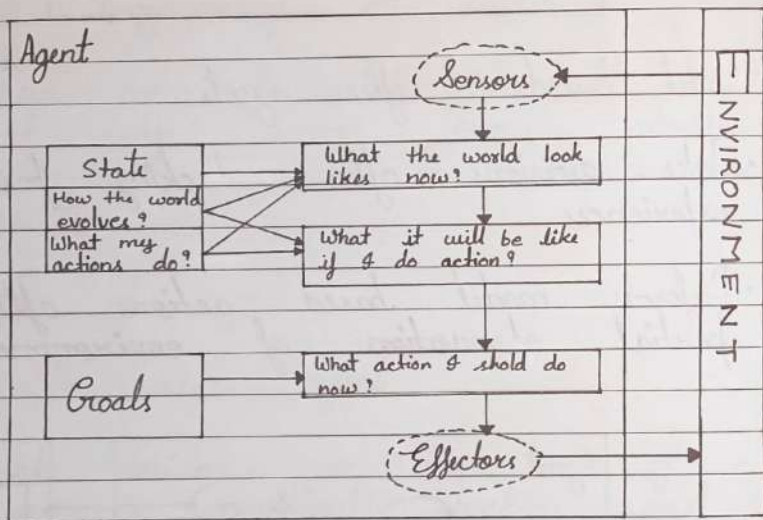 Agent
Sensors
ENVIRONMENT
State
How the world
evolves?
What my
actions do?
What the world look
likes now?
What it will be like
if I do action?
Goals
What action I shold do
now?
Effectors